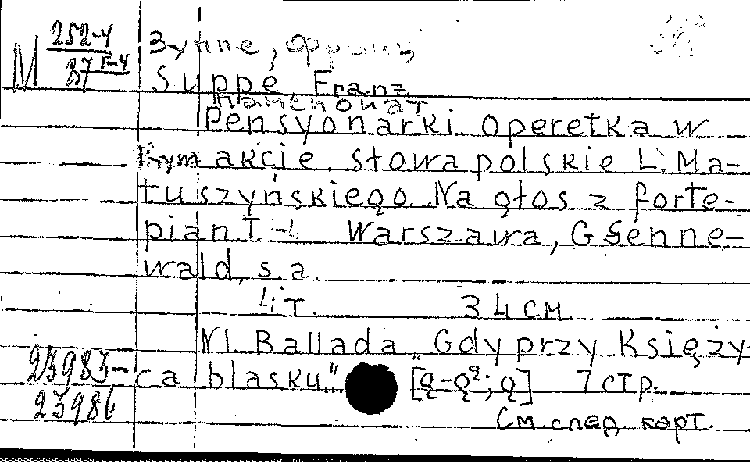 М 252-4
Зуппе, Франц
87 Г-4
Suppé, Franz
Пансионат
Pensyonarki. Operetka w
1ym akcie. Słowa polskie L. Ma-
tuszyńskiego. Na głos z forte-
pian. I-4 Warszawa, G Senne-
wald, s.a.
4 т. 34 см
N1. Ballada „Gdy przy Księży-
23983- ca blasku" [g-g²; g] 7 стр.
23986
См. след. карт.